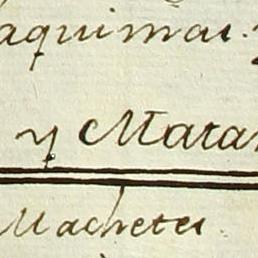 aquimac.
y Matan
Machetec